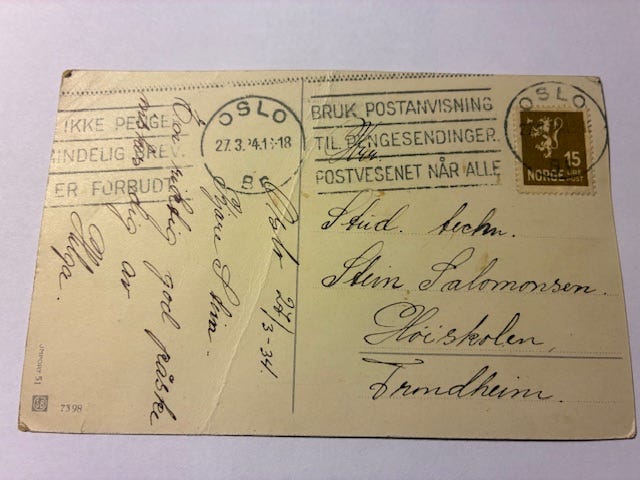 IKKE PENGE
INDELIG BRE
ER FORBUDT
OSLO
27.3.34.1-18
BR
BRUK POSTANVISNING
TIL PENGESENDINGER.
POSTVESENET NÅR ALLE
OSLO
27
15
NORGE
Oslo 27/3-34.
Kjære Stein.
En riktig god påske
ønskes dig av
Helga.
Stud. techn.
Stein Salomonsen.
Høiskolen,
Trondheim.
7398